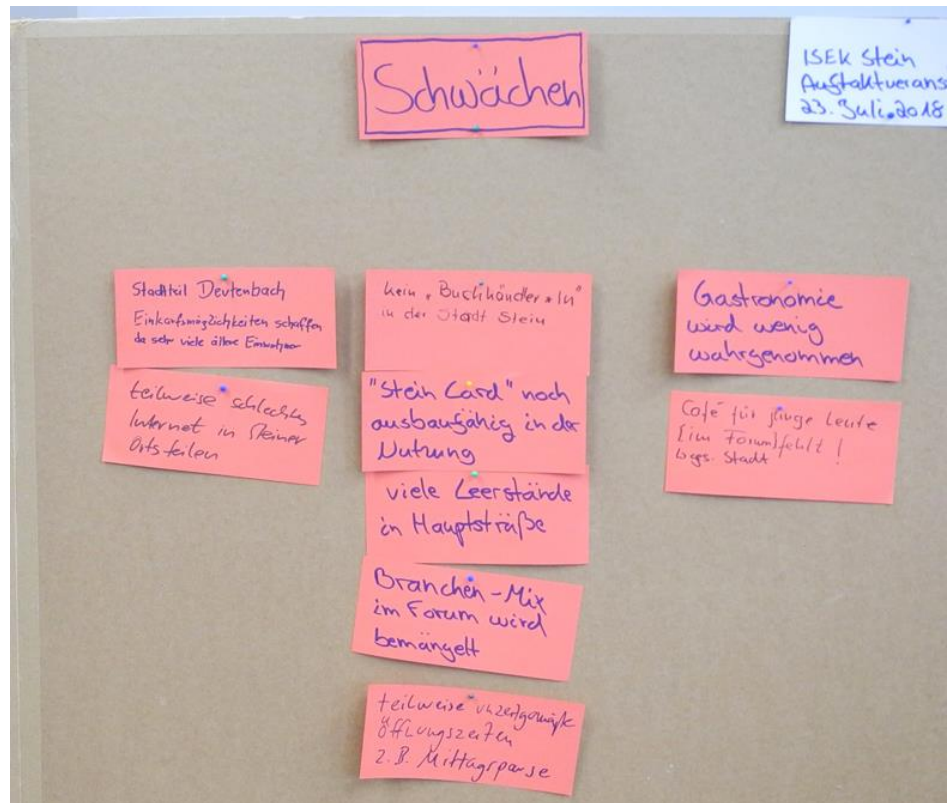 Schwächen
ISEK Stein
Auftaktverans
23. Juli.2018
Stadtteil Deutenbach
Einkaufsmöglichkeiten schaffen
da sehr viele ältere Einwohner
teilweise schlechtes
Internet in Steiner
Ortsteilen
kein "Buchhändler*In"
in der Stadt Stein
"Stein Card" noch
ausbaufähig in der
Nutzung
viele Leerstände
in Hauptsträße
Branchen-Mix
im Forum wird
bemängelt
teilweise unzeitgemäße
Öffnungszeiten
z.B. Mittagspause
Gastronomie
wird wenig
wahrgenommen
Café für junge Leute
(im Forum) fehlt!
Stadt